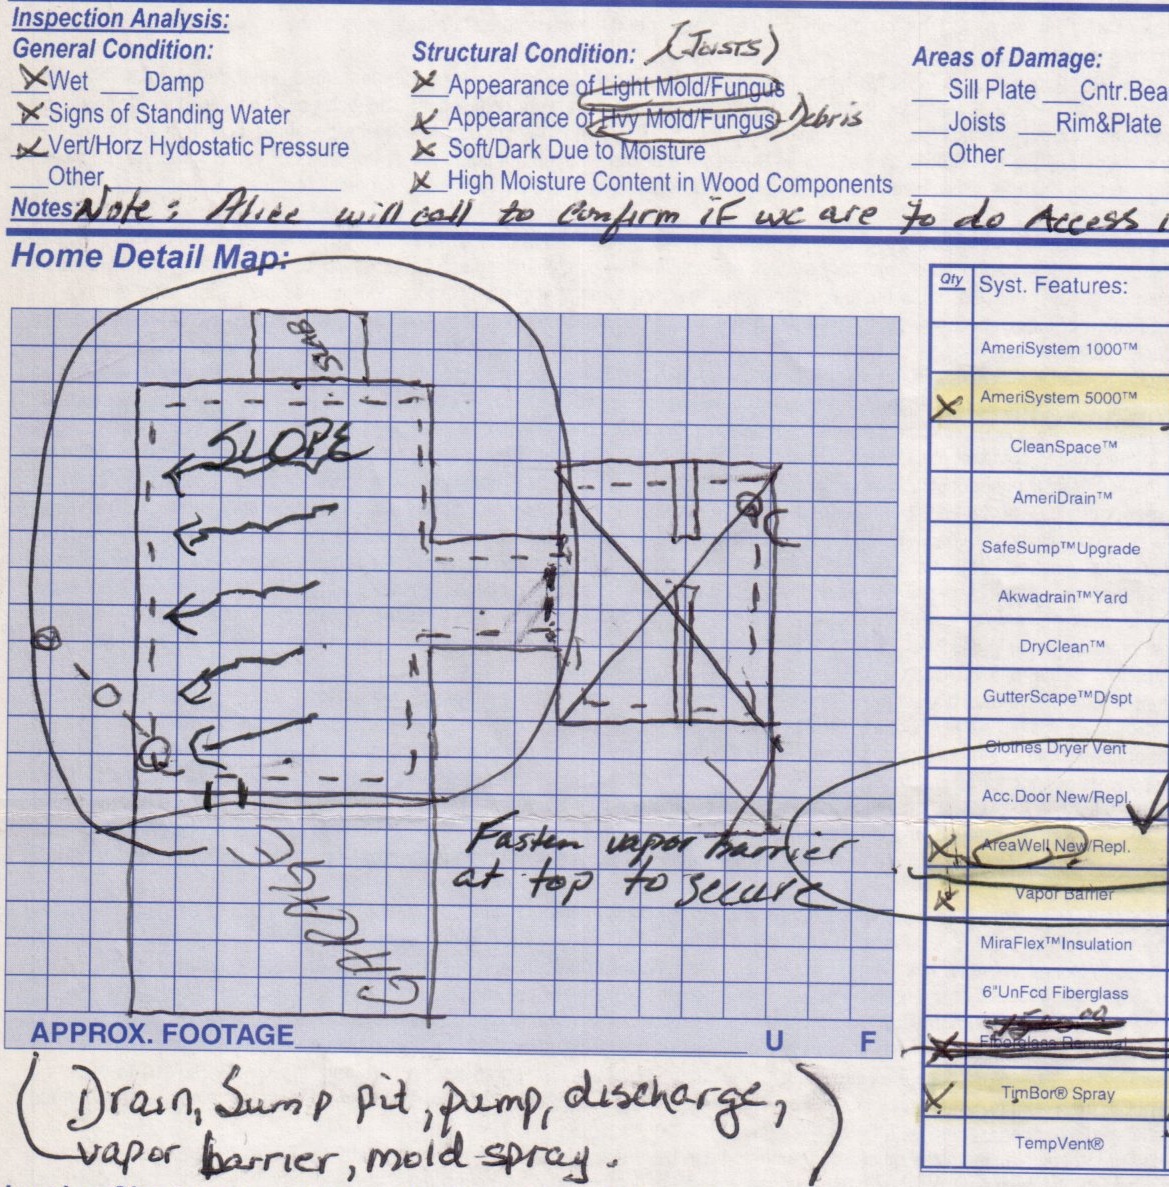 Inspection Analysis:
General Condition:
X Wet ___ Damp
X Signs of Standing Water
X Vert/Horz Hydostatic Pressure
___Other
Structural Condition: (JOISTS)
X Appearance of Light Mold/Fungus
X Appearance of Hvy Mold/Fungus Debris
X Soft/Dark Due to Moisture
X High Moisture Content in Wood Components
Areas of Damage:
___Sill Plate ___Cntr.Bea
___Joists ___Rim&Plate
___Other
Notes: Note: Alice will call to confirm if we are to do Access
Home Detail Map:
SLAB
SLOPE
GARAGE
Fasten vapor barrier
at top to secure
APPROX. FOOTAGE U F
Drain, Sump pit, pump, discharge,
vapor barrier, mold spray.
Qty Syst. Features:
AmeriSystem 1000™
X AmeriSystem 5000™
CleanSpace™
AmeriDrain™
SafeSump™Upgrade
Akwadrain™Yard
DryClean™
GutterScape™D/spt
Clothes Dryer Vent
Acc.Door New/Repl.
X AreaWell New/Repl.
X Vapor Barrier
MiraFlex™Insulation
6"UnFcd Fiberglass
X Fiberglass Removal
X TimBor® Spray
TempVent®